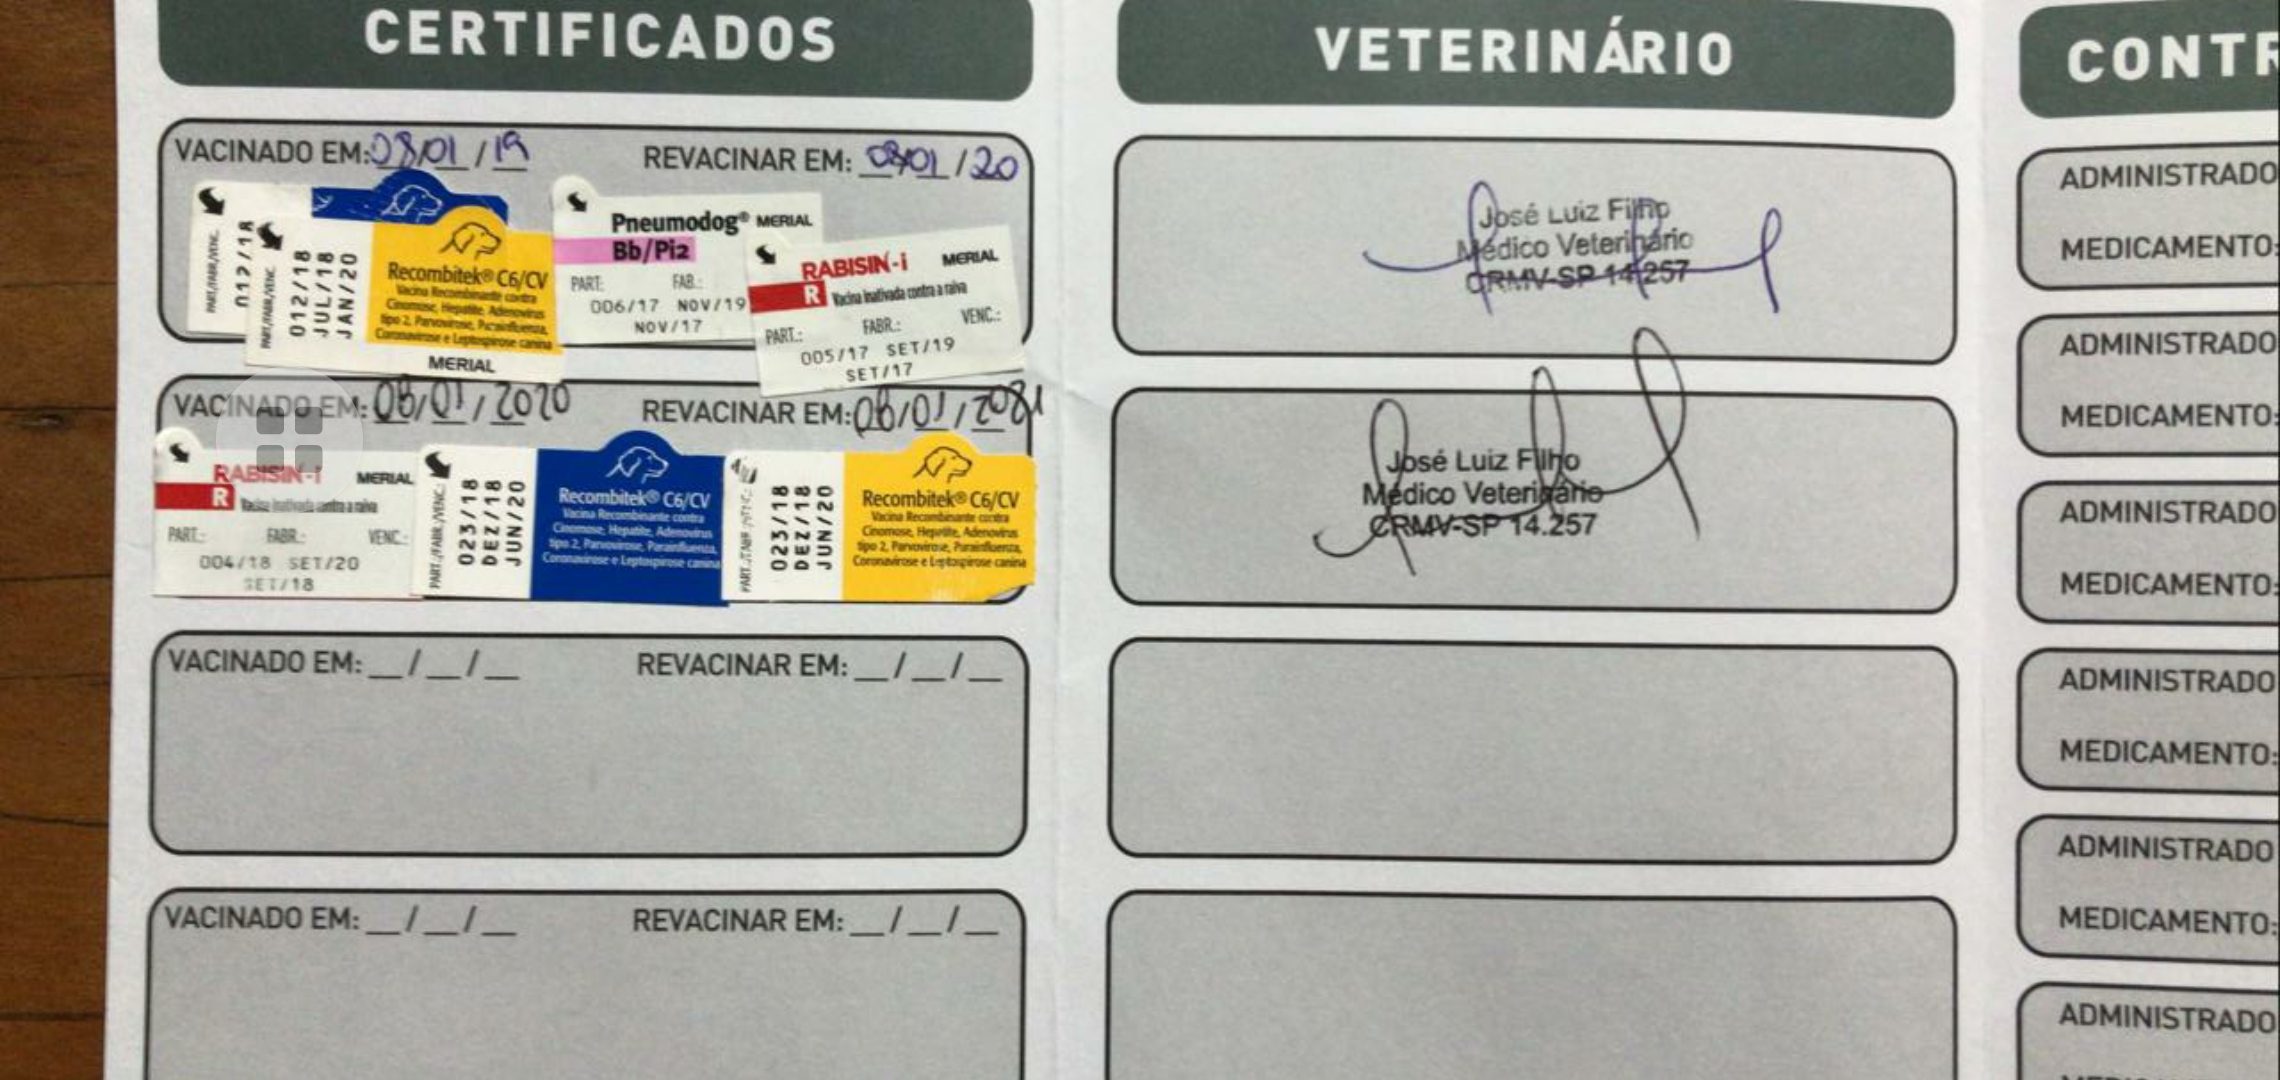 CERTIFICADOS
VETERINÁRIO
VACINADO EM: 08/01/19
REVACINAR EM: 08/01/20
PART./FABR./VENC.
012/18
PART./FABR./VENC.
012/18
JUL/18
JAN/20
Recombitek® C6/CV
Vacina Recombinante contra
Cinomose, Hepatite, Adenovírus
tipo 2, Parvovirose, Parainfluenza,
Coronavirose e Leptospirose canina
MERIAL
Pneumodog® MERIAL
Bb/Pi2
PART: FAB.:
006/17 NOV/19
NOV/17
RABISIN-i MERIAL
R Vacina inativada contra a raiva
PART.: FABR.: VENC.:
005/17 SET/19
SET/17
José Luiz Filho
Médico Veterinário
CRMV-SP 14.257
VACINADO EM: 08/01/2020
REVACINAR EM: 08/01/2021
RABISIN-i MERIAL
R Vacina inativada contra a raiva
PART.: FABR.: VENC.:
004/18 SET/20
SET/18
PART./FABR./VENC.:
023/18
DEZ/18
JUN/20
Recombitek® C6/CV
Vacina Recombinante contra
Cinomose, Hepatite, Adenovírus
tipo 2, Parvovirose, Parainfluenza,
Coronavirose e Leptospirose canina
023/18
DEZ/18
JUN/20
Recombitek® C6/CV
Vacina Recombinante contra
Cinomose, Hepatite, Adenovírus
tipo 2, Parvovirose, Parainfluenza,
Coronavirose e Leptospirose canina
José Luiz Filho
Médico Veterinário
CRMV-SP 14.257
VACINADO EM: __/__/__
REVACINAR EM: __/__/__
VACINADO EM: __/__/__
REVACINAR EM: __/__/__
CONTR
ADMINISTRADO
MEDICAMENTO:
ADMINISTRADO
MEDICAMENTO:
ADMINISTRADO
MEDICAMENTO:
ADMINISTRADO
MEDICAMENTO:
ADMINISTRADO
MEDICAMENTO:
ADMINISTRADO